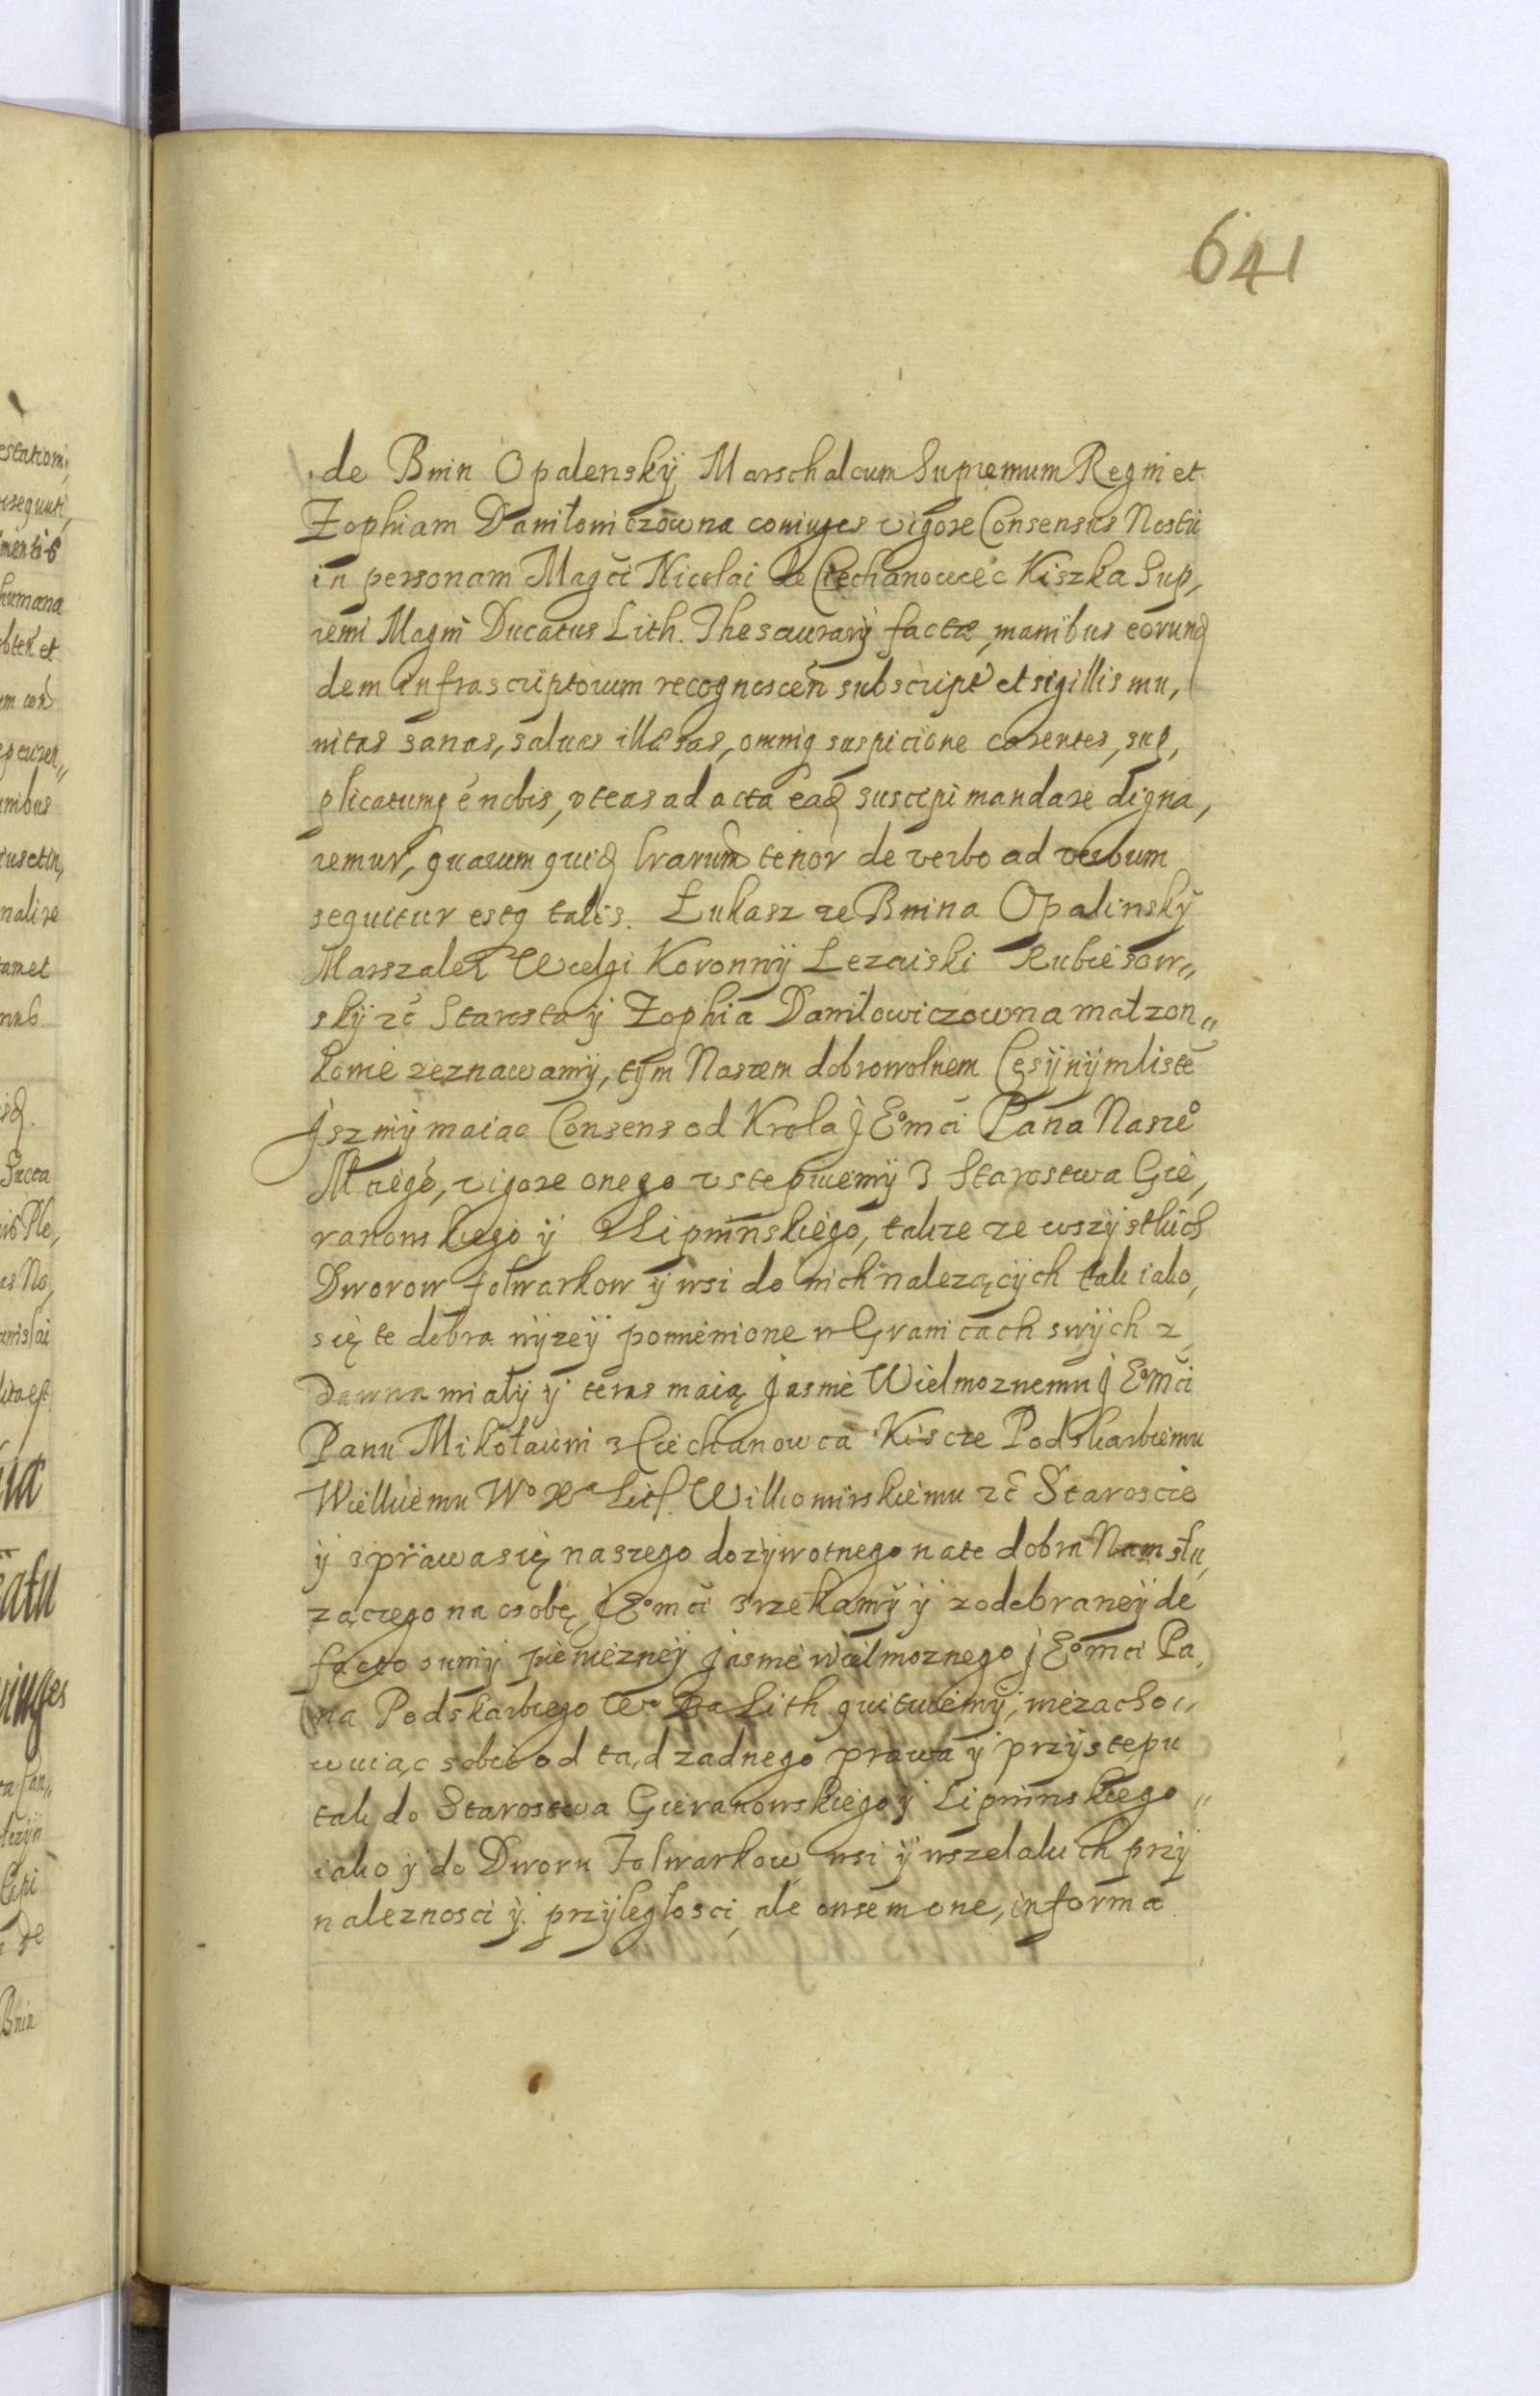 641
de Bnin Opalenskÿ Marschalcum Supremum Regni et
Zophiam Daniłowiczowna coniuges vigore Consensus Nostri
in personam Magci Nicolai de Ciechanowiec Kiszka Sup,
remi Magni Ducatus Lith. Thesaurarÿ factæ, manibus eorunq
dem infrascriptorum recognoscen subscript et sigillis mu,
nitas sanas, saluas illæsas, omniq suspicione carentes, sup,
plicatumq é nobis, vt eas ad acta eaq suscipi mandare digna,
remur, quarum quiq lrarum tenor de verbo ad verbum
sequitur estq talis. Łukasz ze Bnina Opalinskÿ
Marszałek Wielgi Koronnÿ Lezaiski Rubieszow„
skÿ zć Starosta ÿ Zophia Daniłowiczowna małzon„
kowie zeznawamÿ, tÿm Naszem dobrowolnem Cęsÿnÿm liste
Jsz mÿ maiąc Consens od Krola J Eºmći Pana Naszeº
Mćiego, vigore onego vstepuiemÿ z Starostwa Gie,
ranonskiego ÿ Lipninskiego, takze ze wszÿstkich
Dworow folwarkow ÿ wsi do nich nalezącÿch tak iako,
się te dobra wÿzeÿ pomienione w Granicach swÿch z
dawna miałÿ ÿ teras maią Jasnie Wielmoznemu J Eºmći
Panu Mikołaiwi z Ciechanowca Kiscze Podskarbiemu
Wielkiemu Wº Xª Lith. Wilkomirskiemu zć Staroscie
ÿ sprawa się naszego dozÿwotnego na te dobra Nam słu,
zączego na osobę J Eºmći zrzekamÿ ÿ z odebraneÿ de
facto sumÿ pienieznéÿ Jasnie wielmoznego J Eºmći Pa,
na Podskarbiego Wº Xa Lith. quituiemÿ, niezacho„
wuiąc sobie od tąd zadnego prawa ÿ przÿstępu
tak do Starostwa Gieranonskiego ÿ Lipninskiego„
iako ÿ do Dworu Folwarkow wsi ÿ wszelakich przÿ
naleznosci ÿ przÿległosci, ale owsem one, in forma